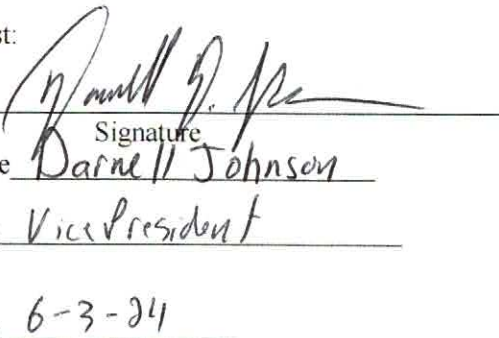 st:
Darnell D. J
Signature
e Darnell Johnson
Vice President
6-3-24